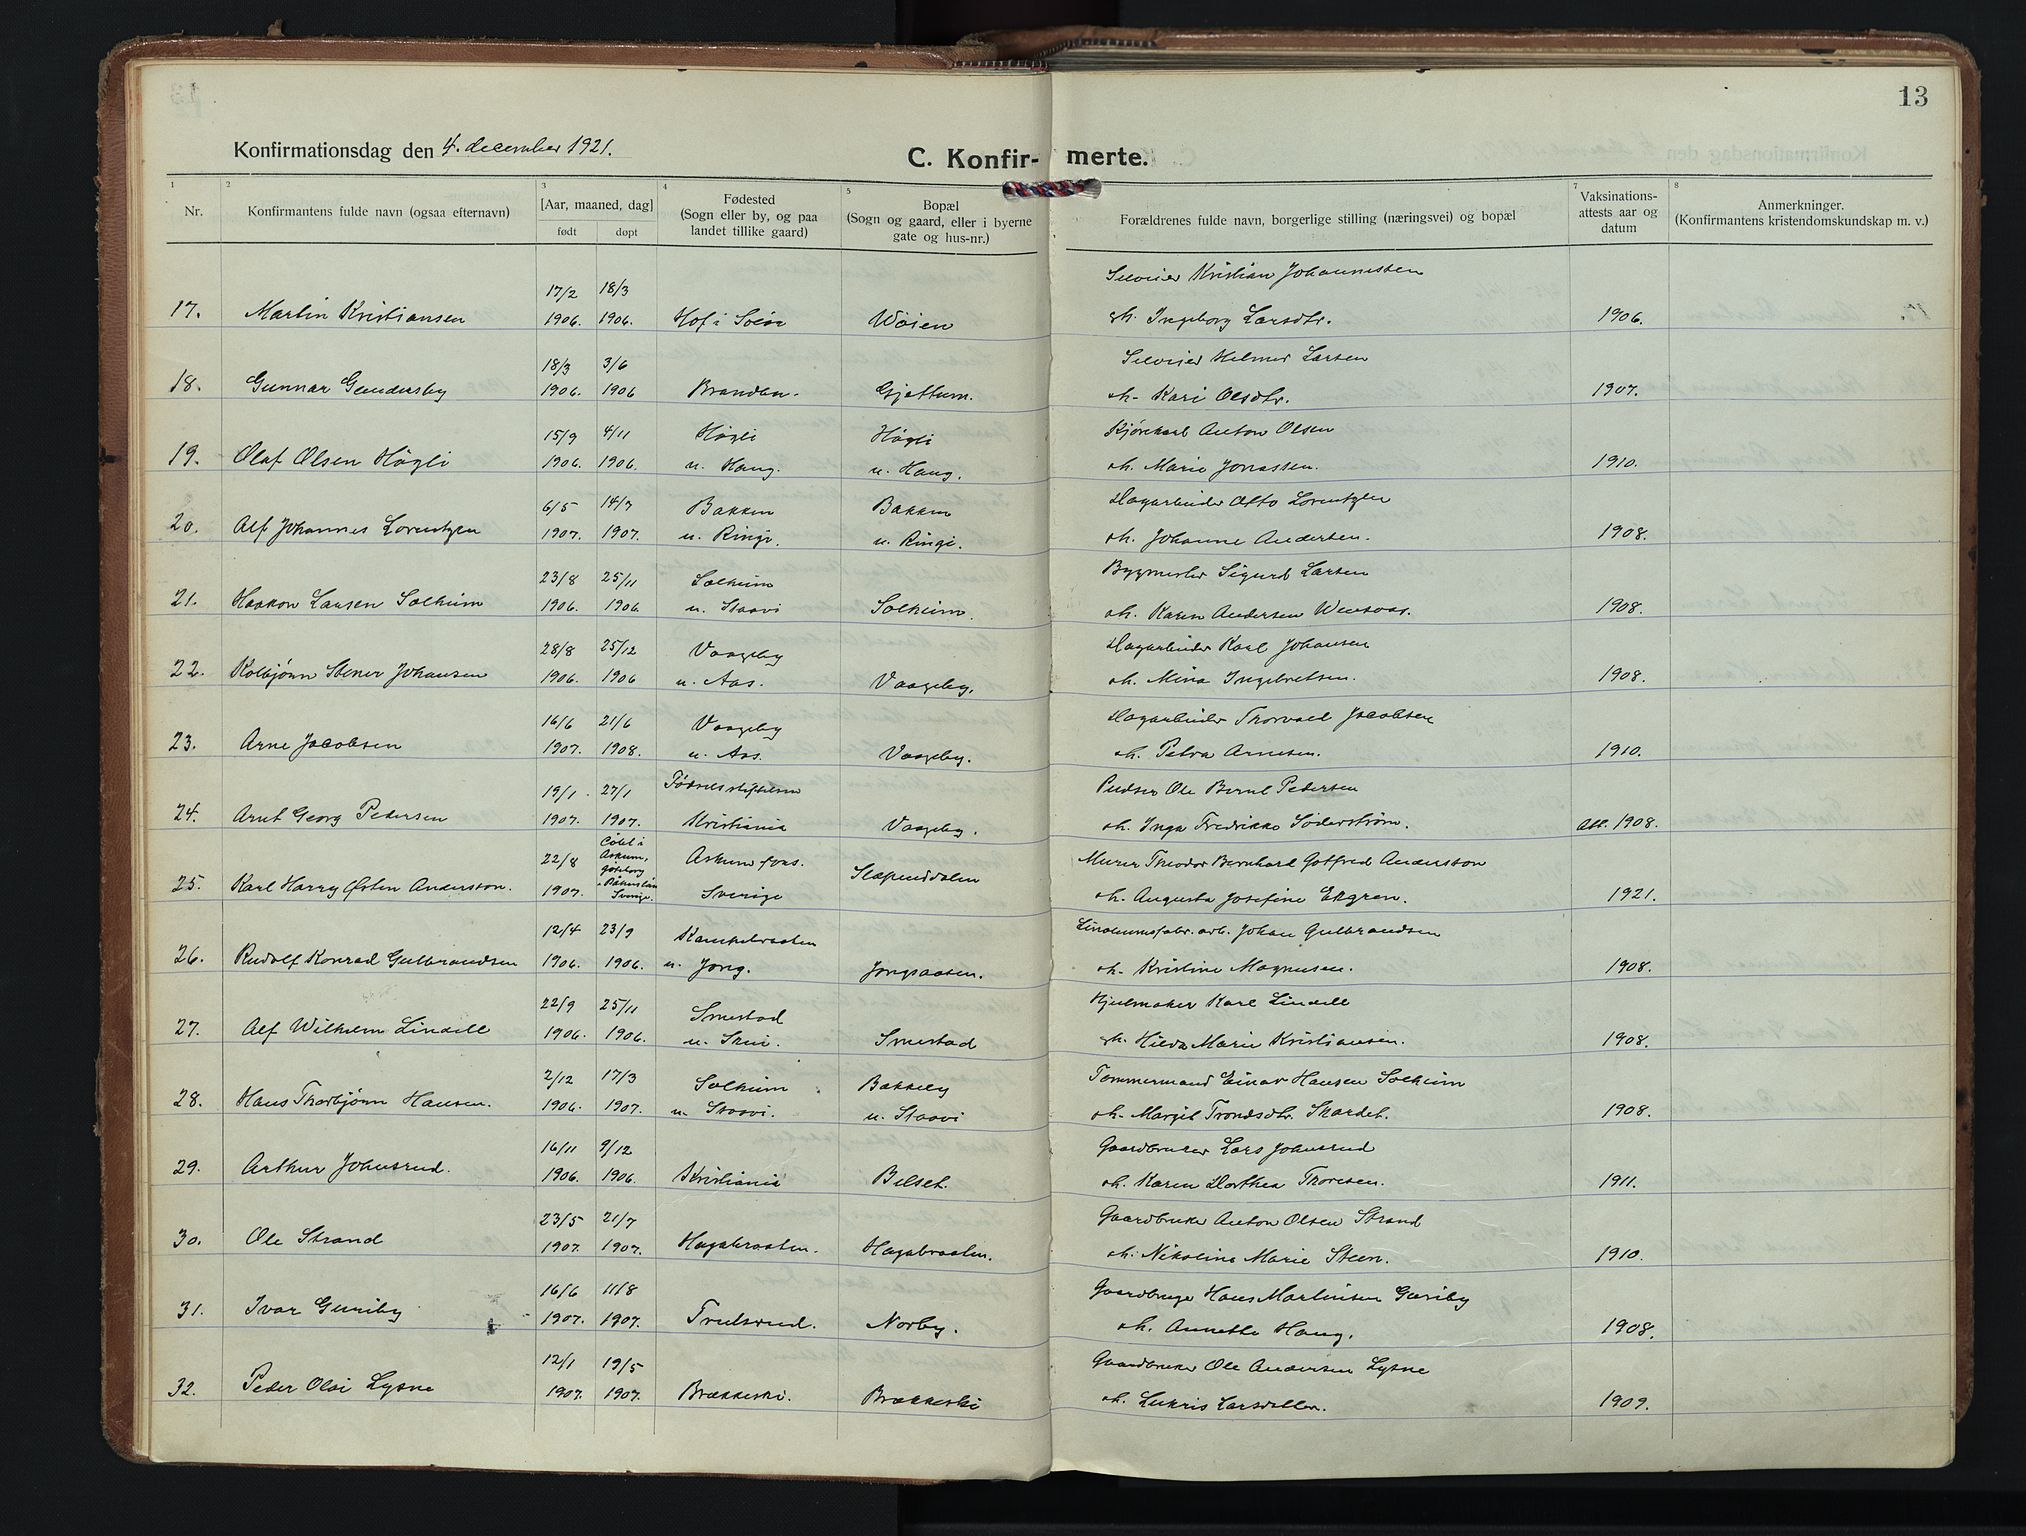 13
Konfirmationsdag den 4. december 1921.
C. Konfir- merte.
1 2 3 4 5 7 8
Nr.
Konfirmantens fulde navn (ogsaa efternavn)
[Aar, maaned, dag]
født døpt
Fødested
(Sogn eller by, og paa
landet tillike gaard)
Bopæl
(Sogn og gaard, eller i byerne
gate og hus-nr.)
Forældrenes fulde navn, borgerlige stilling (næringsvei) og bopæl
Vaksinations-
attests aar og
datum
Anmerkninger.
(Konfirmantens kristendomskundskap m. v.)
17/2 18/3 Kristian Johannessen
17. Martin Kristiansen 1906. 1906. Hof i Wøien Ingeborg Larsdtr. 1906.
18/3 3/6 Helmer Larsen
18. Gunnar 1906. 1906 Branden. Gjettum. Kari Olsdtr. 1907.
15/9 4/11 Høgli Høgli Kjørekarl Anton Olsen
19. Olaf Olsen Høgli 1906. 1906. u. Haug. u. Haug. Marie Jonassen. 1910.
6/5 14/7 Bakken Bakken Dagarbeider Otto Lorentzen
20. Alf Johannes Lorentzen 1907. 1907. u. Ringi. u. Ringi. Johanne Andersen. 1908.
23/8 25/11 Solheim Bygmester Sigurd Larsen
21. Haakon Larsen Solheim 1906. 1906 u. Staavi Solheim. Karen Andersen 1908.
28/8 25/12 Vaageby Dagarbeider Karl Johansen
22. Kolbjørn Stener Johansen 1906. 1906 u. Aas. Vaageby. Mina Ingebretsen. 1908.
16/6 21/6 Vaageby Dagarbeider Thorvald Jacobsen
23. Arne Jacobsen 1907. 1908. u. Aas. Vaageby. Petra Arnesen. 1910.
19/1 27/1 Fødselsstiftelsen Pudser Ole Bernt Pedersen
24. Arnt Georg Pedersen 1907. 1907. Kristiania Vaageby. Inga Fredrikke Søderstrøm. att. 1908.
22/8 Askum fors. Slæpenddalen Murer Theodor Bernhard Gotfred Andersson
25. Karl Harry Østen Andersson. 1907. Askum, Göteborg Sverige. Sverige Augusta Josefine Ekgren. 1921.
12/4 23/9 Linoleumsfabr. arb. Johan Gulbrandsen
26. Rudolf Konrad Gulbrandsen 1906. 1906. u. Jong. Jongsaasen. Kristine Magnusen. 1908.
22/9 25/11 Smestad Hjulmaker Karl Lindell
27. Alf Wilhelm Lindell 1906. 1906. u. Skui. Smestad Hilda Marie Kristiansen. 1908.
2/12 17/3 Solheim Bakkely Tømmermand Einar Hansen Solheim
28. Hans Thorbjørn Hansen. 1906. 1907. u. Staavi. u. Staavi Margit Trondsdtr. Skardet. 1908.
16/11 9/12 Gaardbruker Lars Johnsrud
29. Arthur Johnsrud. 1906. 1906. Kristiania Belset. Karen Dorthea Thoresen. 1911.
23/5 21/7 Gaardbruker Anton Olsen Strand
30. Ole Strand 1907. 1907. Hagabraaten. Hagabraaten. Nikoline Marie Steen. 1910.
16/6 11/8 Gaardbruger Hans Martinsen
31. Ivar 1907. 1907. Trulsrud. Norby. Annette Haug. 1908.
12/1 19/5 Gaardbruker Ole Andersen Lysne
32. Peder Olai Lysne 1907. 1907. Brækkeski. Brækkeski Larsdatter. 1909.